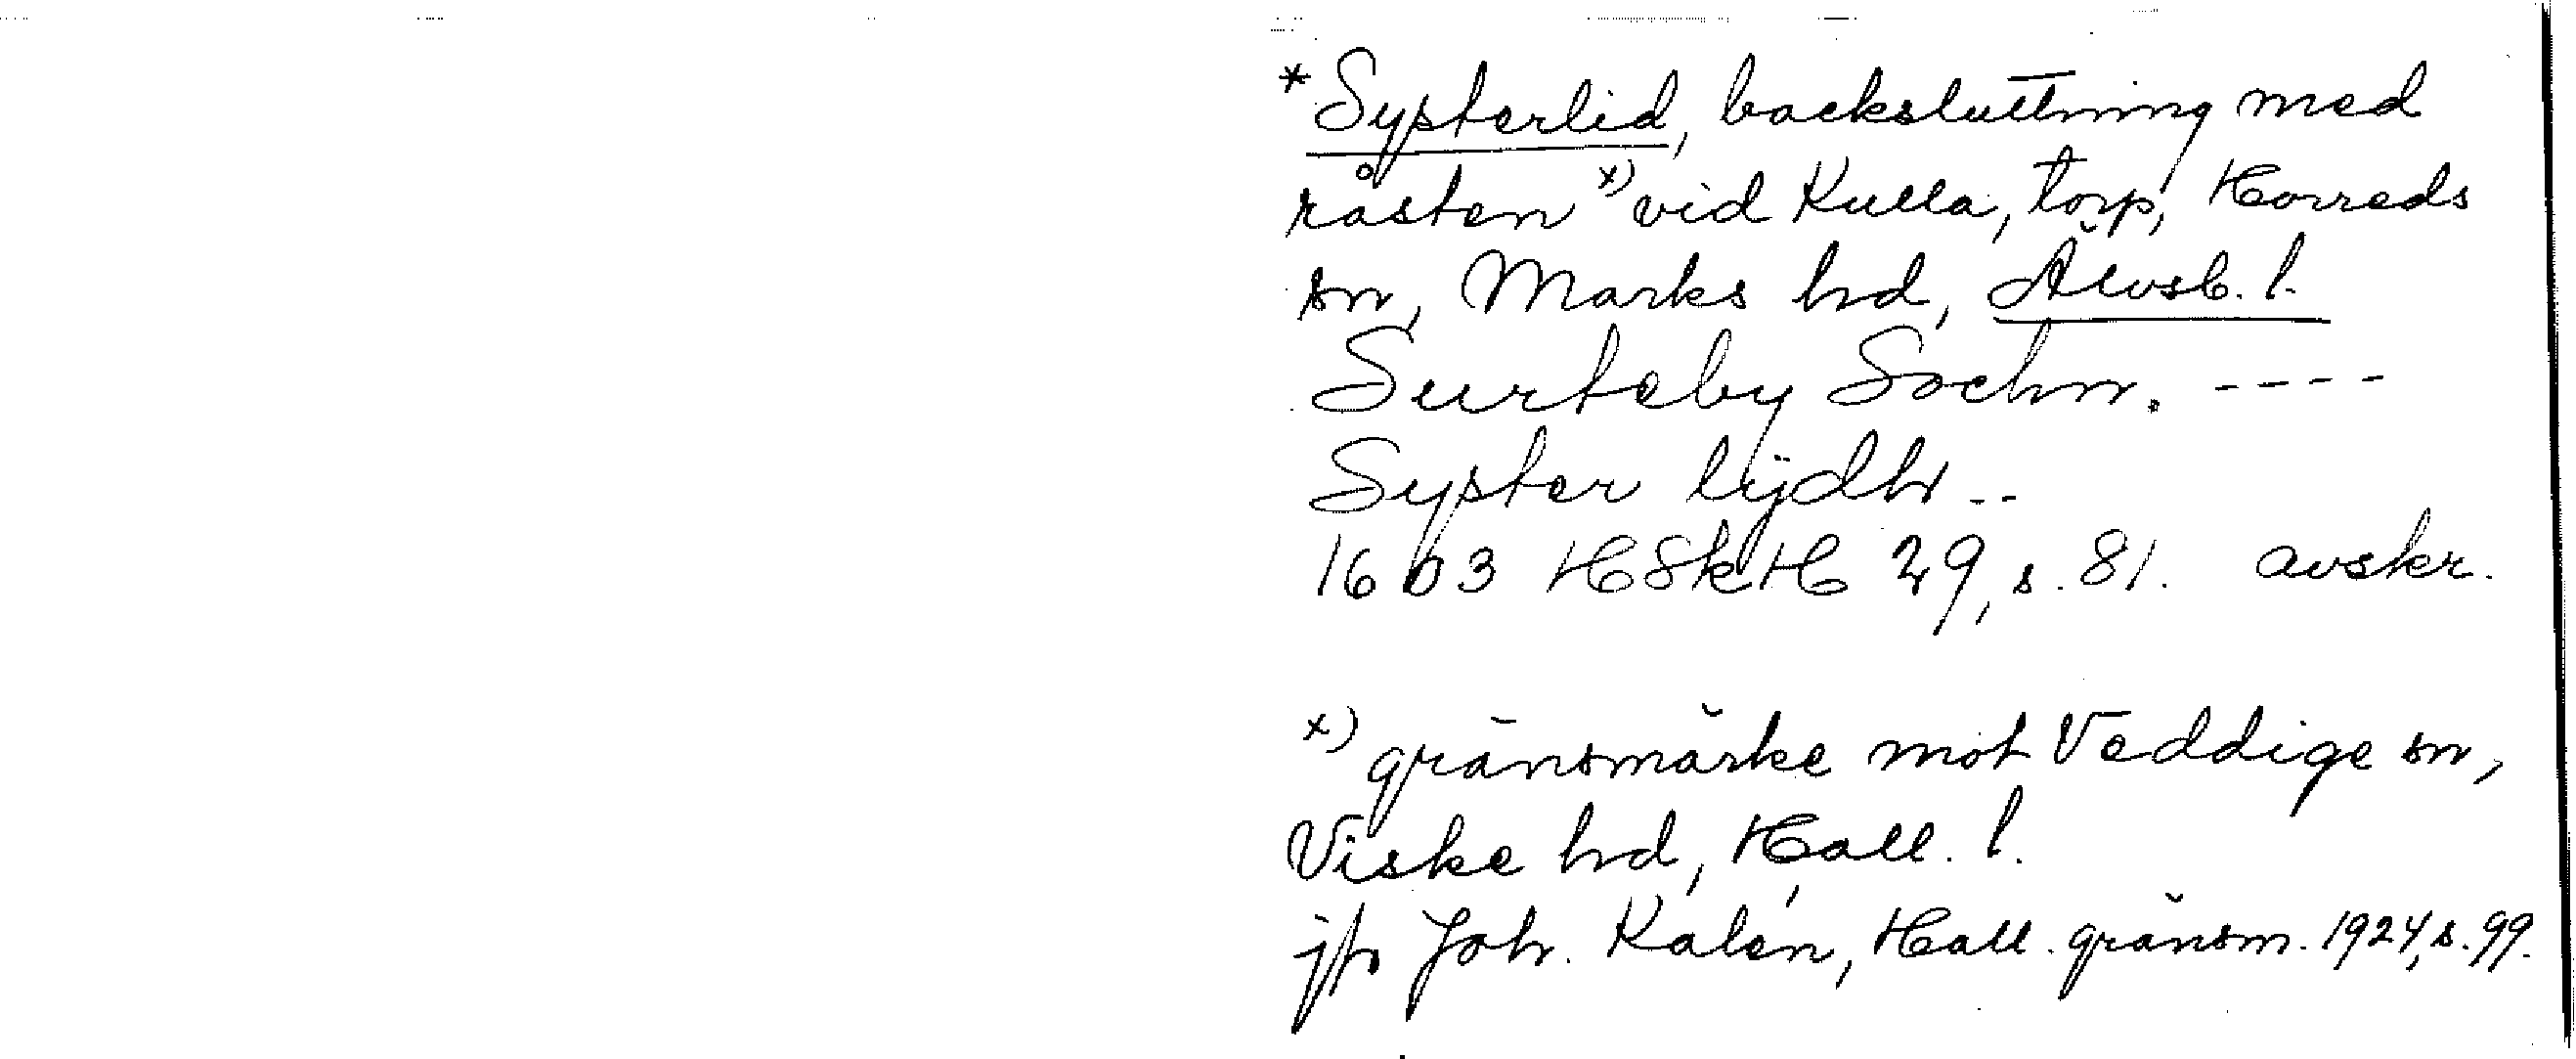 *Systerlid, backsluttning med
råsten x) vid Kulla, torp, Horreds
sn, Marks hd, Älvsb. l.
Surteby Sochn. ----
Syster lÿdh --
1603 HSkH 29, s. 81. avskr.
x) gränsmärke mot Veddige sn,
Viske hd, Hall. l.
jfr Joh. Kalén, Hall. gränsm. 1924, s. 99.